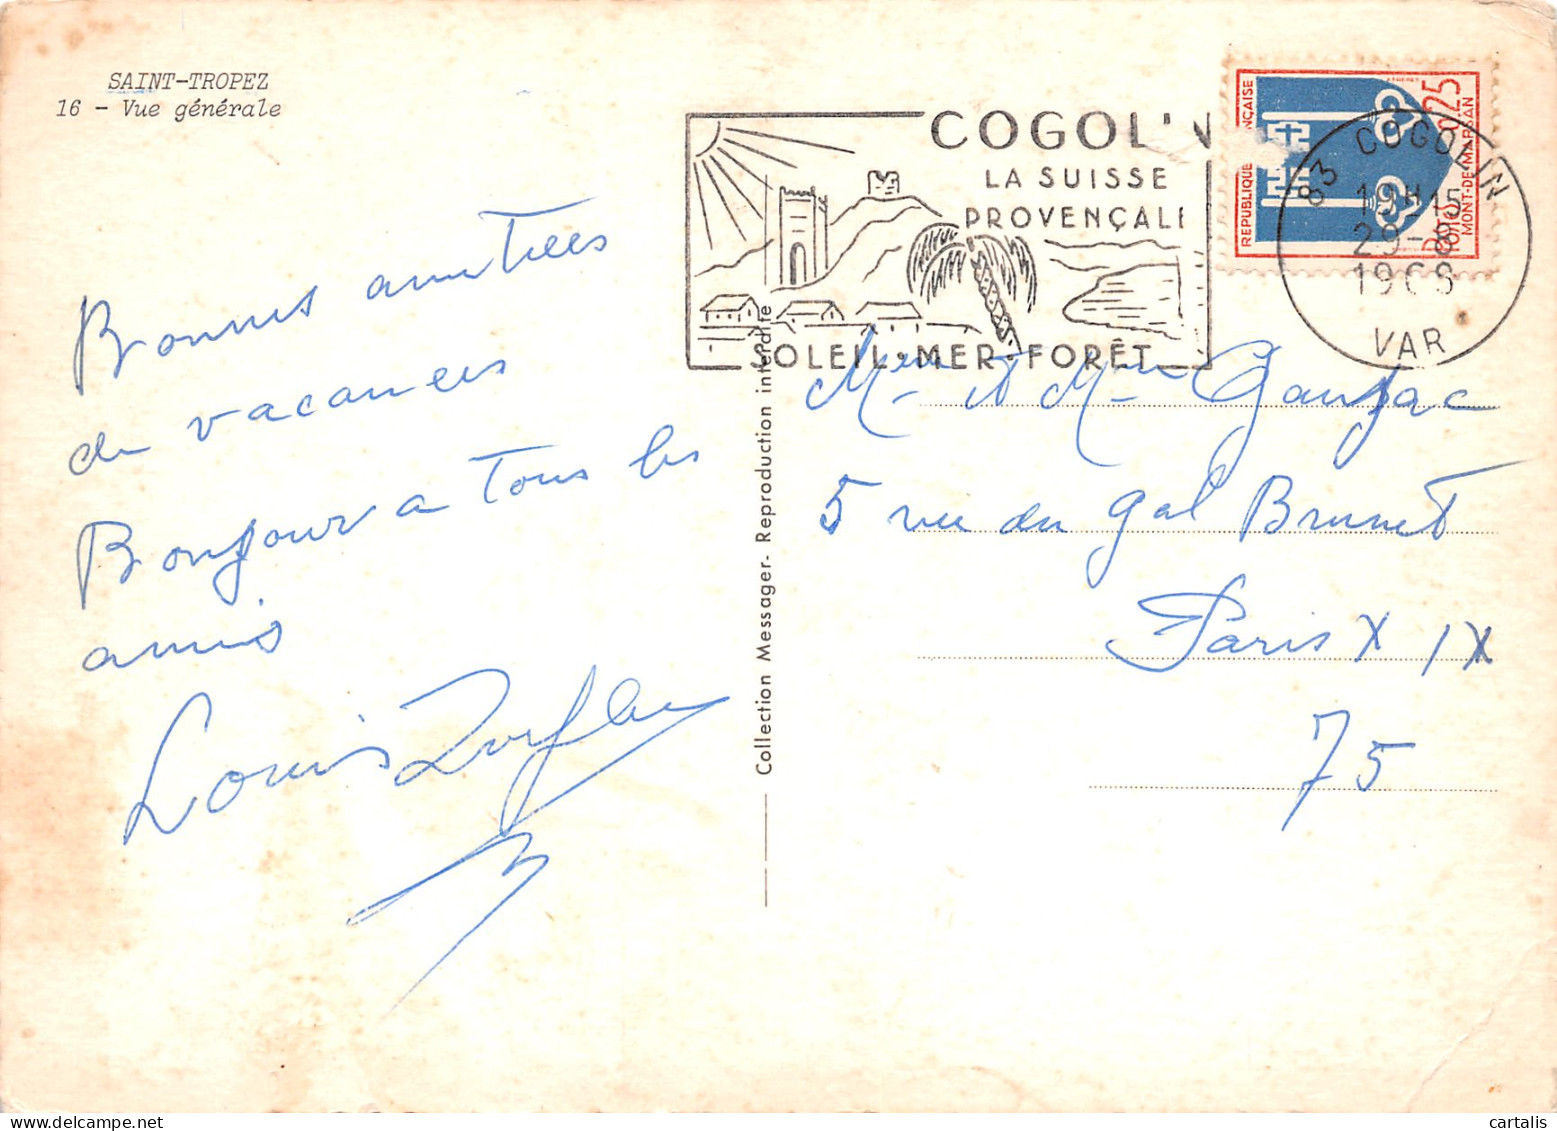 SAINT-TROPEZ
16 - Vue générale
COGOL'N
LA SUISSE
PROVENÇALE
SOLEIL·MER·FORÊT
REPUBLIQUE FRANÇAISE
0,25
POSTES
MONT-DE-MARSAN
83 COGOLIN
19H15
29-8
1968
VAR
Bonnes amitiees
de vacances
Bonjour a tous les
amis
Louis
Collection Messager - Reproduction interdite
Mme et Mme Gauzac
5 rue du Gal Brunet
Paris X IX
75
cartalis